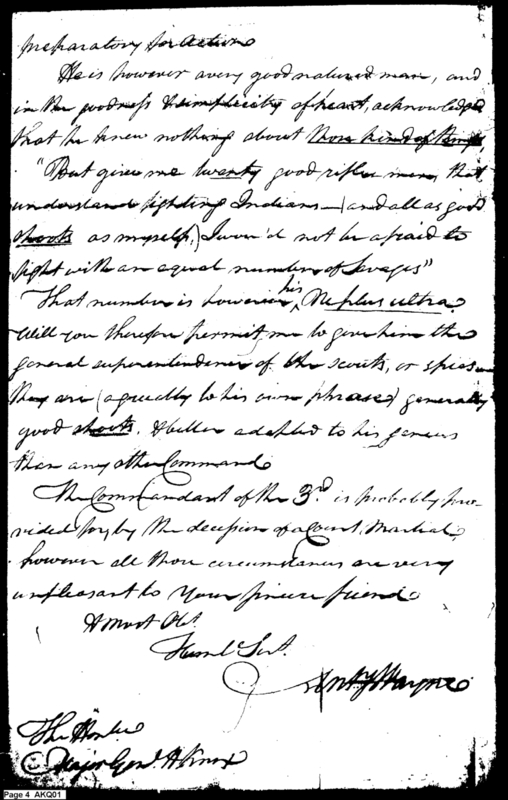 preparatory for action
He is however a very good natured man, and
in the goodness & simplicity of heart, acknowledged
that he knew nothing about those kind of things,
"But give me twenty good rifle men, that
understand fighting Indians—(and all as good
shoots as myself,) I wou'd not be afraid to
fight with an equal number of savages"
That number is however his, Ne plus ultra.
Will you therefore permit me to give him the
general superentendence of the scouts, or spies
they are (agreeably to his own phrase) generally
good shoots. & better adapted to his genius
than any other Command
The Commandant of the 3rd is probably pro-
vided for, by the decision of a Court Martial,
however all those circumstances are very
unpleasant to Your sincere friend
& Most Obt
Huml Sert.
Anty Wayne
The Honble
Major Genl H Knox
Page 4 AKQ01